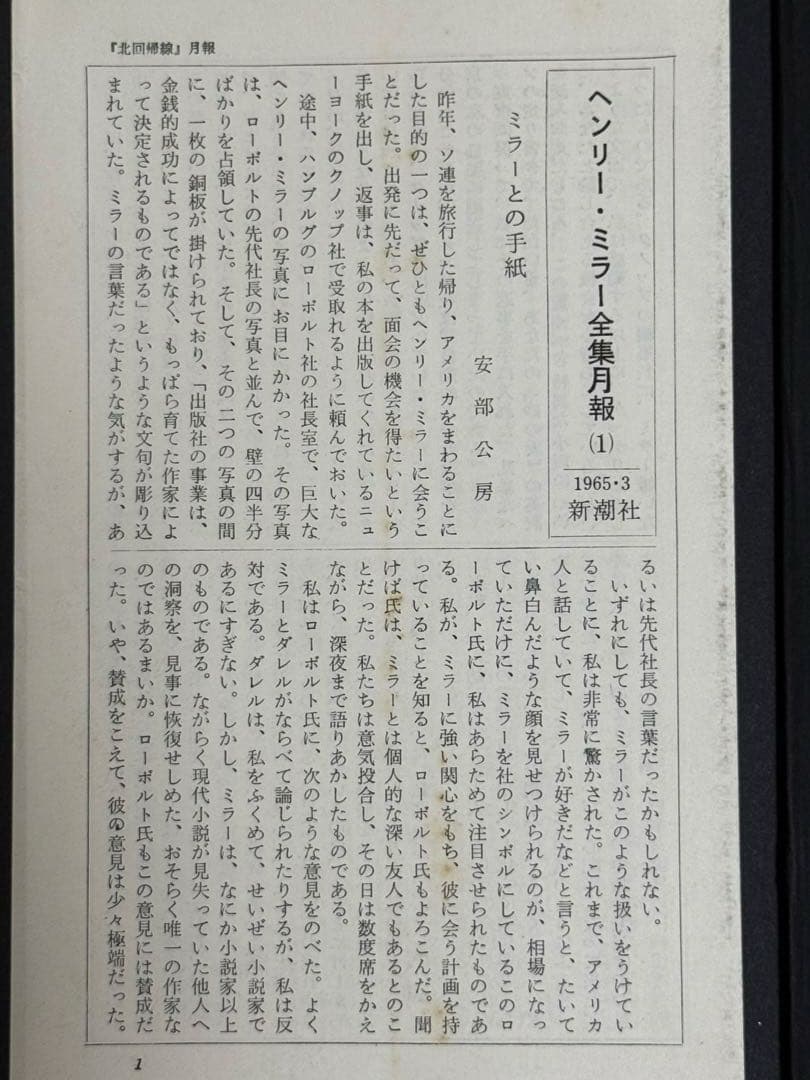 『北回帰線』月報
ヘンリー・ミラー全集月報(1)
1965・3
新潮社
ミラーとの手紙
安部公房
昨年、ソ連を旅行した帰り、アメリカをまわることに
した目的の一つは、ぜひともヘンリー・ミラーに会うこ
とだった。出発に先だって、面会の機会を得たいという
手紙を出し、返事は、私の本を出版してくれているニュ
ーヨークのクノップ社で受取れるように頼んでおいた。
途中、ハンブルグのローボルト社の社長室で、巨大な
ヘンリー・ミラーの写真にお目にかかった。その写真
は、ローボルトの先代社長の写真と並んで、壁の四半分
ばかりを占領していた。そして、その二つの写真の間
に、一枚の銅板が掛けられており、「出版社の事業は、
金銭的成功によってではなく、もっぱら育てた作家によ
って決定されるものである」というような文句が彫り込
まれていた。ミラーの言葉だったような気がするが、あ
るいは先代社長の言葉だったかもしれない。
いずれにしても、ミラーがこのような扱いをうけてい
ることに、私は非常に驚かされた。これまで、アメリカ
人と話していて、ミラーが好きだなどと言うと、たいて
い鼻白んだような顔を見せつけられるのが、相場になっ
ていただけに、ミラーを社のシンボルにしているこのロ
ーボルト氏に、私はあらためて注目させられたものであ
る。私が、ミラーに強い関心をもち、彼に会う計画を持
っていることを知ると、ローボルト氏もよろこんだ。聞
けば氏は、ミラーとは個人的な深い友人でもあるとのこ
とだった。私たちは意気投合し、その日は数度席をかえ
ながら、深夜まで語りあかしたものである。
私はローボルト氏に、次のような意見をのべた。よく
ミラーとダレルがならべて論じられたりするが、私は反
対である。ダレルは、私をふくめて、せいぜい小説家で
あるにすぎない。しかし、ミラーは、なにか小説家以上
のものである。ながらく現代小説が見失っていた他人へ
の洞察を、見事に恢復せしめた、おそらく唯一の作家な
のではあるまいか。ローボルト氏もこの意見には賛成だ
った。いや、賛成をこえて、彼の意見は少々極端だった。
1